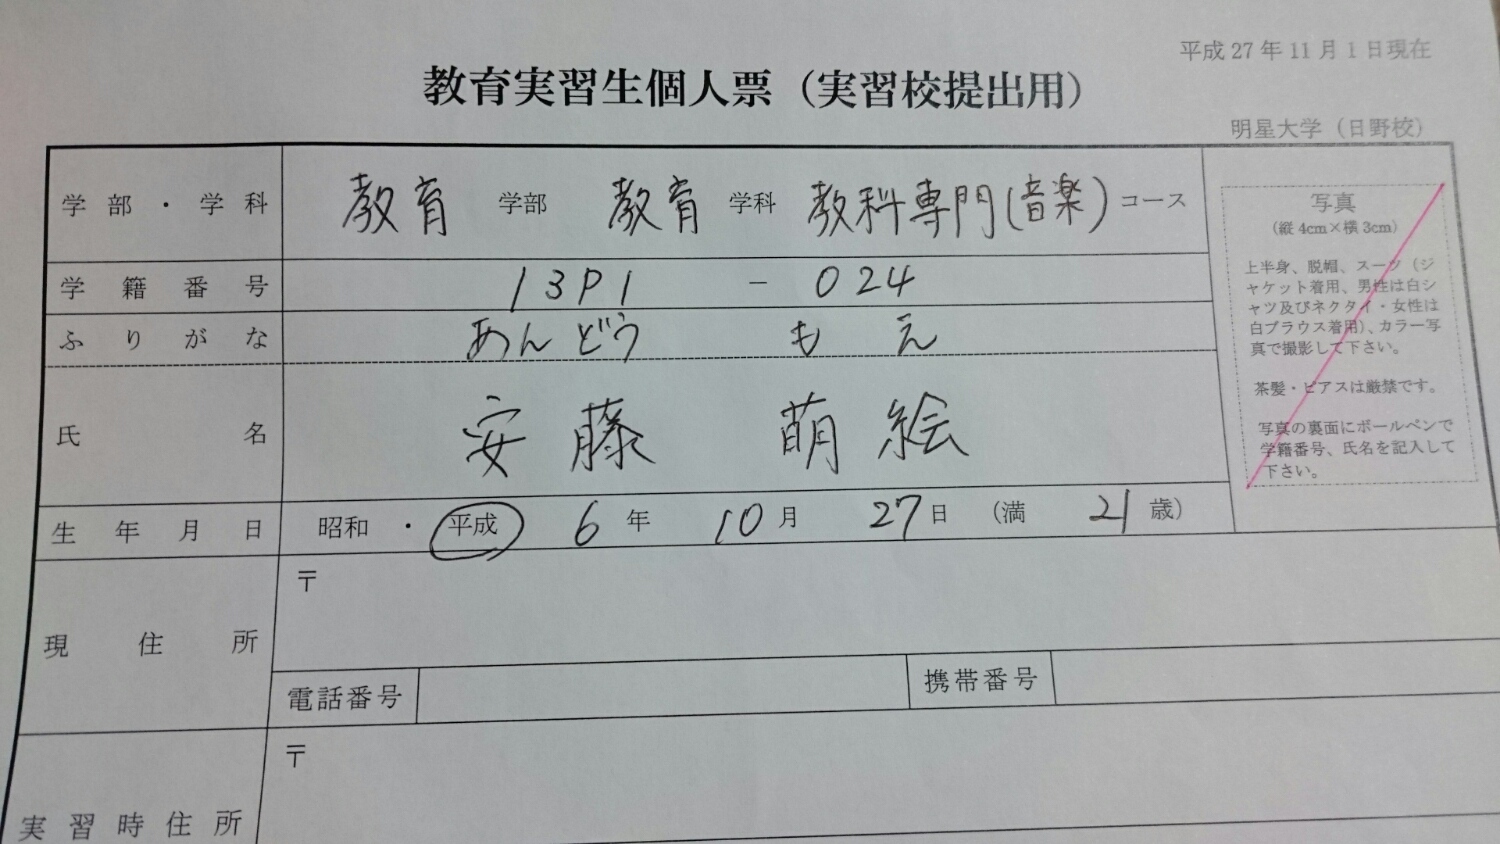 平成27年11月1日現在
教育実習生個人票（実習校提出用）
明星大学（日野校）
学部・学科 教育 学部 教育 学科 教科専門(音楽) コース
学籍番号 13P1 － 024
ふりがな あんどう もえ
氏名 安藤 萌絵
生年月日 昭和・平成 6年 10月 27日 （満 21歳）
写真
（縦4cm×横3cm）
上半身、脱帽、スーツ（ジ
ャケット着用、男性は白シ
ャツ及びネクタイ・女性は
白ブラウス着用）、カラー写
真で撮影して下さい。
茶髪・ピアスは厳禁です。
写真の裏面にボールペンで
学籍番号、氏名を記入して
下さい。
現住所 〒
電話番号 携帯番号
実習時住所 〒